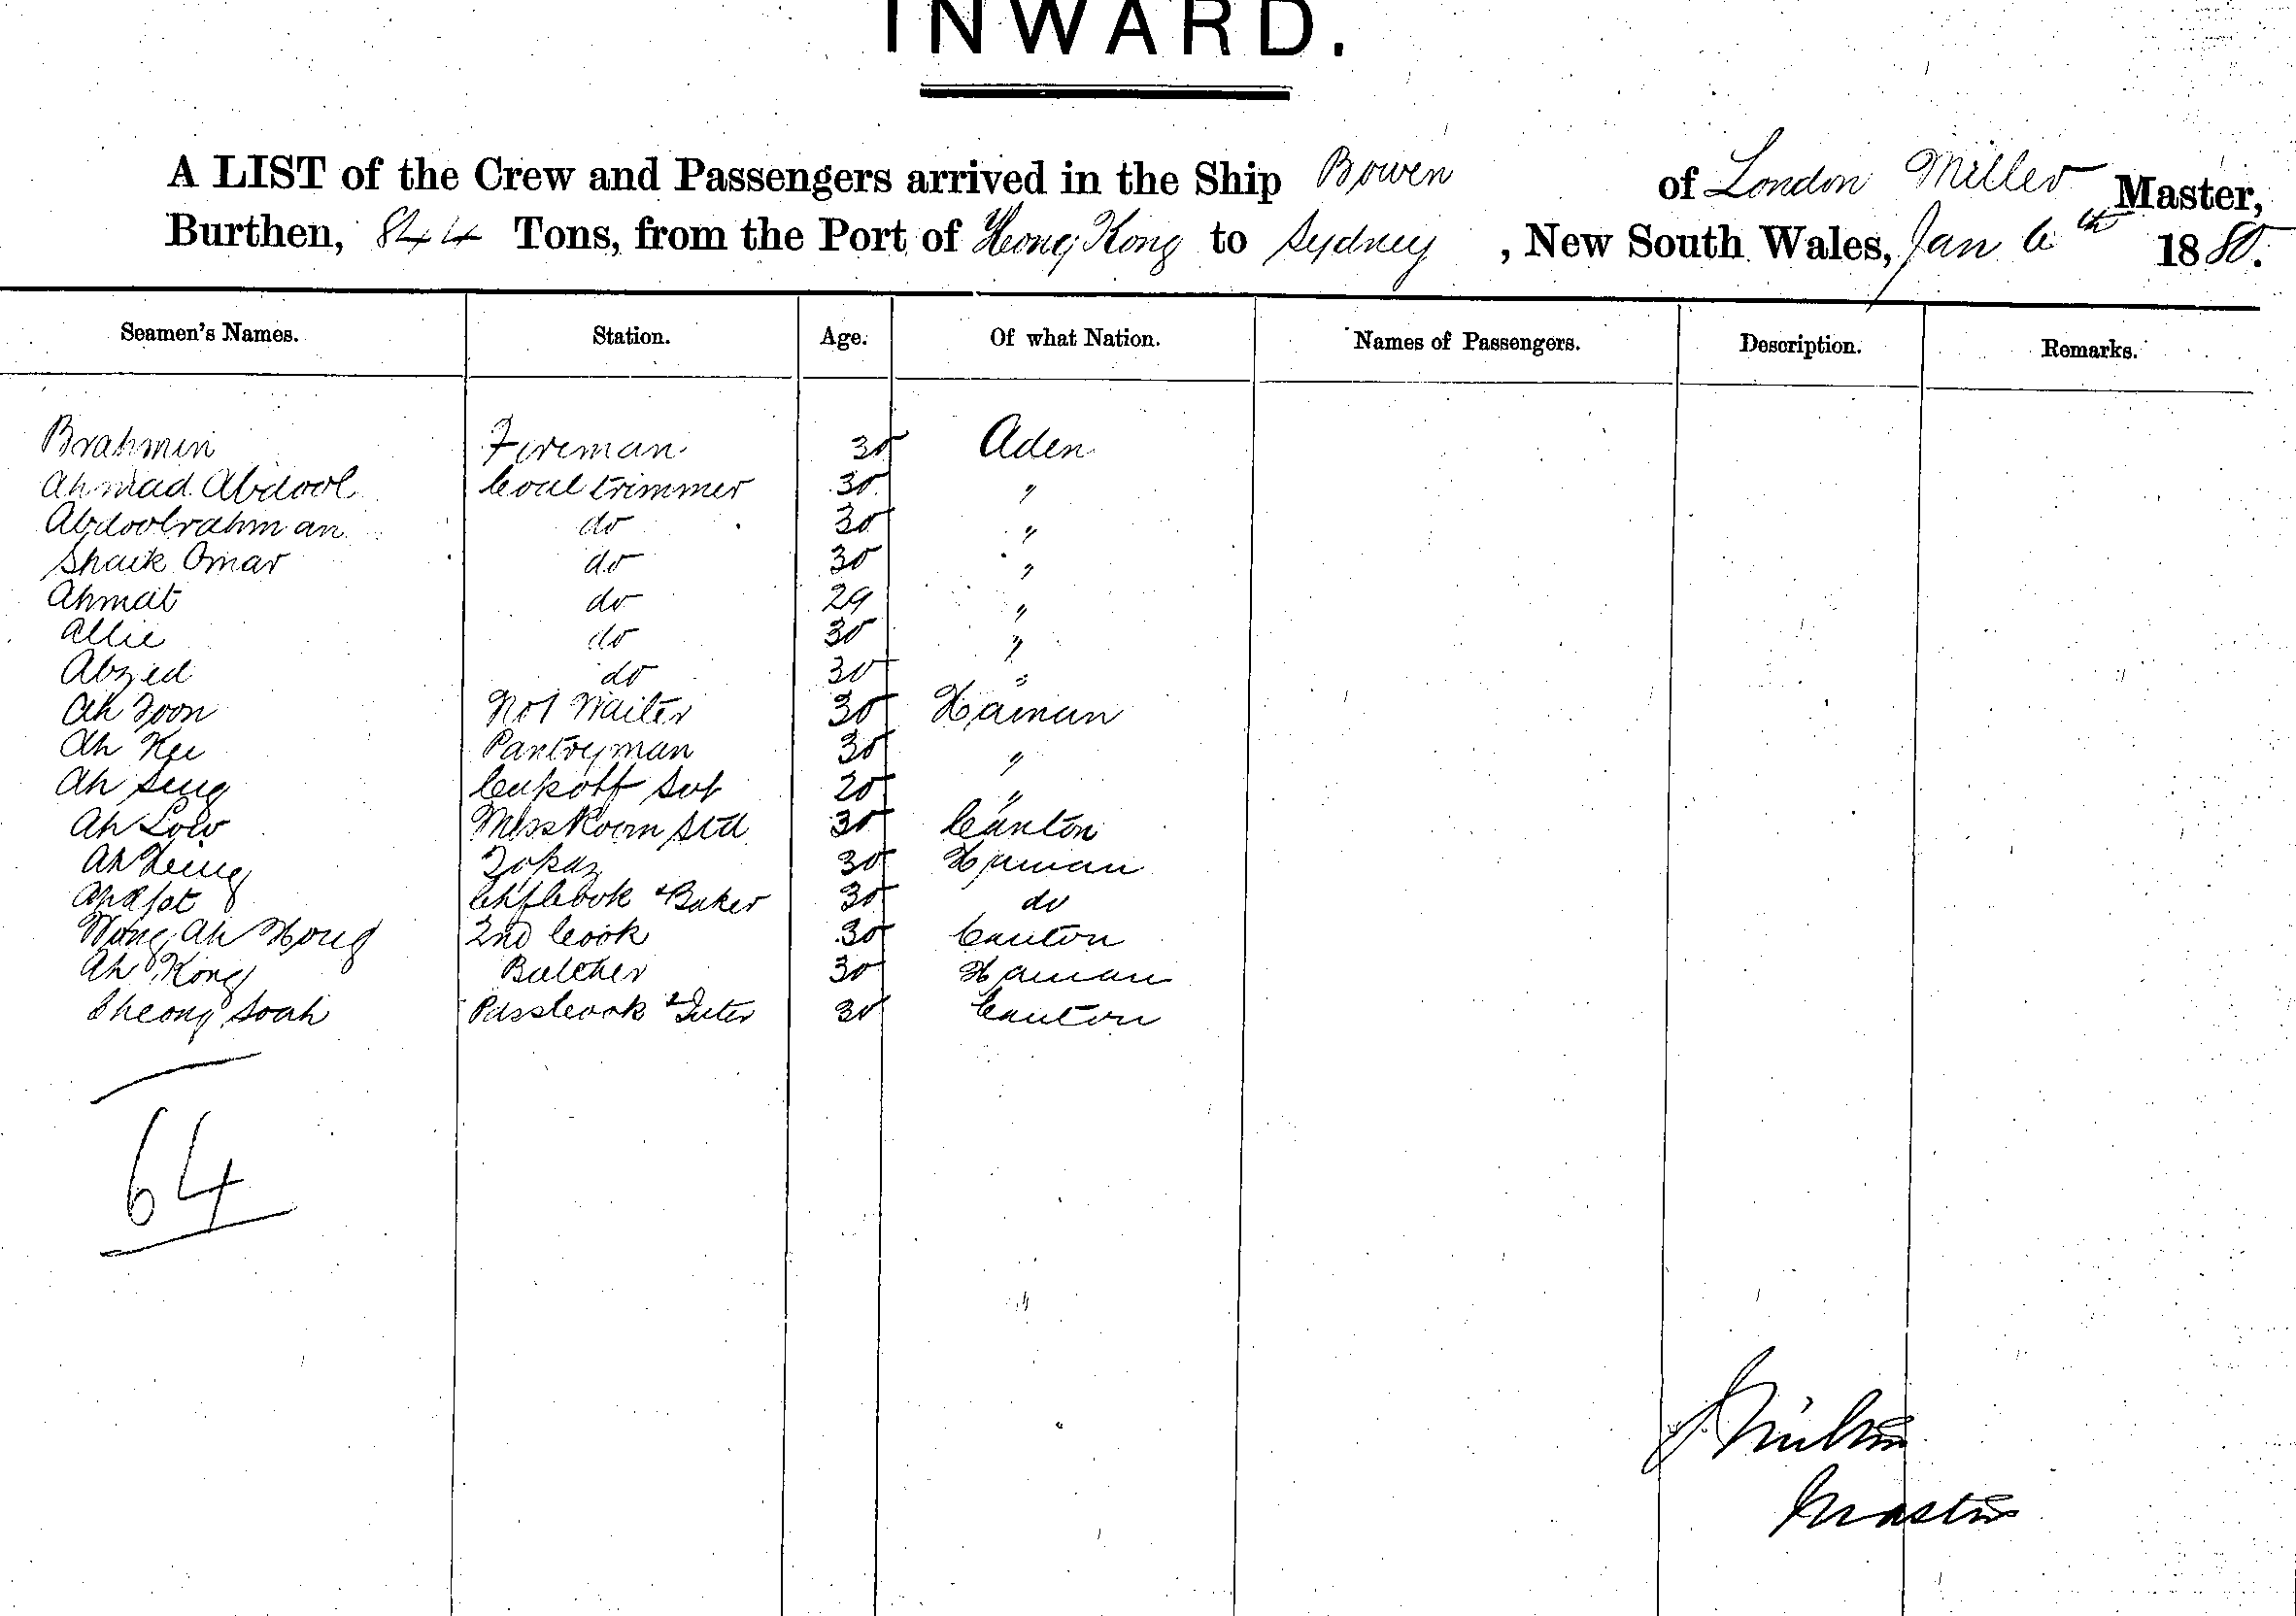 INWARD.
A LIST of the Crew and Passengers arrived in the Ship Bowen of London Miller Master,
Burthen, 844 Tons, from the Port of Hong Kong to Sydney, New South Wales, Jan 6th 1880.
Seamen's Names. Station. Age. Of what Nation. Names of Passengers. Description. Remarks.
Brahmin Fireman 30 Aden
Ahmad Abdool Coal trimmer 30 "
Abdoolrahman do 30 "
Shaik Omar do 30 "
Ahmat do 29 "
Allie do 30 "
Abzed do 30 "
Ah Zoon No1 Waiter 30 Hainan
Ah Kee Pantryman 30 "
Ah Seng 20 "
Ah Low Messroom Std 30 Canton
Topaz 30 Hainan
Chf Cook & Baker 30 do
Wong Ah Hong 2nd Cook 30 Canton
Ah Kong Butcher 30 Hainan
Cheong Soah Pass Cook & Inter 30 Canton
64
J. Miller
Master